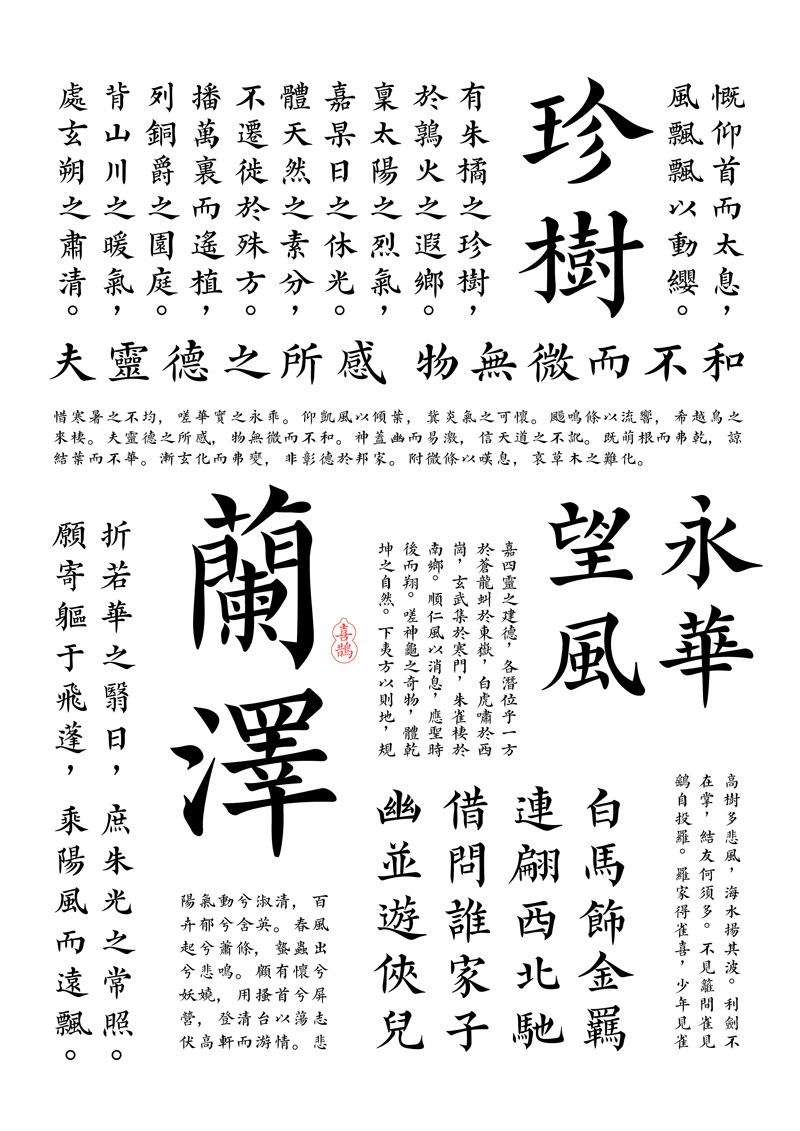 慨仰首而太息，
風飄飄以動纓。
珍樹
有朱橘之珍樹，
於鶉火之遐鄉。
稟太陽之烈氣，
嘉杲日之休光。
體天然之素分，
不遷徙於殊方。
播萬裏而遙植，
列銅爵之園庭。
背山川之暖氣，
處玄朔之肅清。
夫靈德之所感 物無微而不和
惜寒暑之不均，嗟華實之永乖。仰凱風以傾葉，冀炎氣之可懷。颺鳴條以流響，希越鳥之
來棲。夫靈德之所感，物無微而不和。神蓋幽而易激，信天道之不訛。既萌根而弗乾，諒
結葉而不華。漸玄化而弗變，非彰德於邦家。附微條以嘆息，哀草木之難化。
永華
望風
嘉四靈之建德，各潛位乎一方
於蒼龍虯於東嶽，白虎嘯於西
崗，玄武集於寒門，朱雀棲於
南鄉。順仁風以消息，應聖時
後而翔。嗟神龜之奇物，體乾
坤之自然。下夷方以則地，規
蘭澤
喜鵲
折若華之翳日，庶朱光之常照。
願寄軀于飛蓬，乘陽風而遠飄。
高樹多悲風，海水揚其波。利劍不
在掌，結友何須多。不見籬間雀見
鷂自投羅。羅家得雀喜，少年見雀
白馬飾金羈
連翩西北馳
借問誰家子
幽並遊俠兒
陽氣動兮淑清，百
卉郁兮含英。春風
起兮蕭條，蟄蟲出
兮悲鳴。顧有懷兮
妖嬈，用搔首兮屏
營，登清台以蕩志
伏高軒而游情。悲